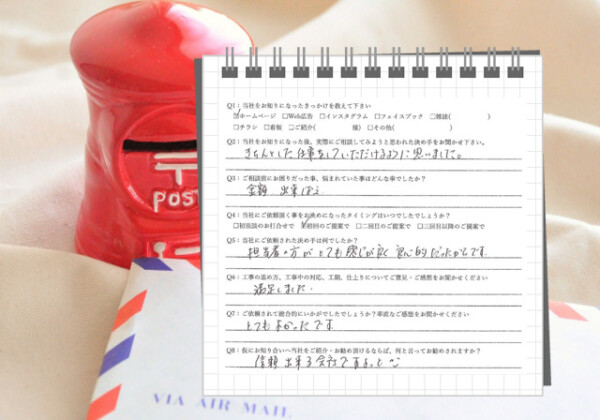 〒
POST
Q1：当社をお知りになったきっかけを教えて下さい
☑ホームページ □Web広告 □インスタグラム □フェイスブック □雑誌( )
□チラシ □看板 □ご紹介( 様) □その他( )
Q2：当社をお知りになった後、実際にご相談してみようと思われた決め手をお聞かせ下さい。
きちんとした仕事をしていただけるように思いました。
Q3：ご相談前にお困りだった事、悩まれていた事はどんな事でしたか？
金額 出来ばえ
Q4：当社にご依頼頂く事をお決めになったタイミングはいつでしたでしょうか？
□初回談のお打合せで ☑初回のご提案で □二回目のご提案で □三回目以降のご提案で
Q5：当社にご依頼された決め手は何でしたか？
担当者の方がとても感じが良く良心的だったからです。
Q6：工事の進め方、工事中の対応、工期、仕上りについてご意見・ご感想をお聞かせください
満足しました。
Q7：ご依頼されて総合的にいかがでしたでしょうか？率直なご感想をお聞かせください
とてもよかったです
Q8：仮にお知り合いへ当社をご紹介・お勧め頂けるならば、何と言ってお勧めされますか？
信頼出来る会社ですよっと
VIA AIR MAIL